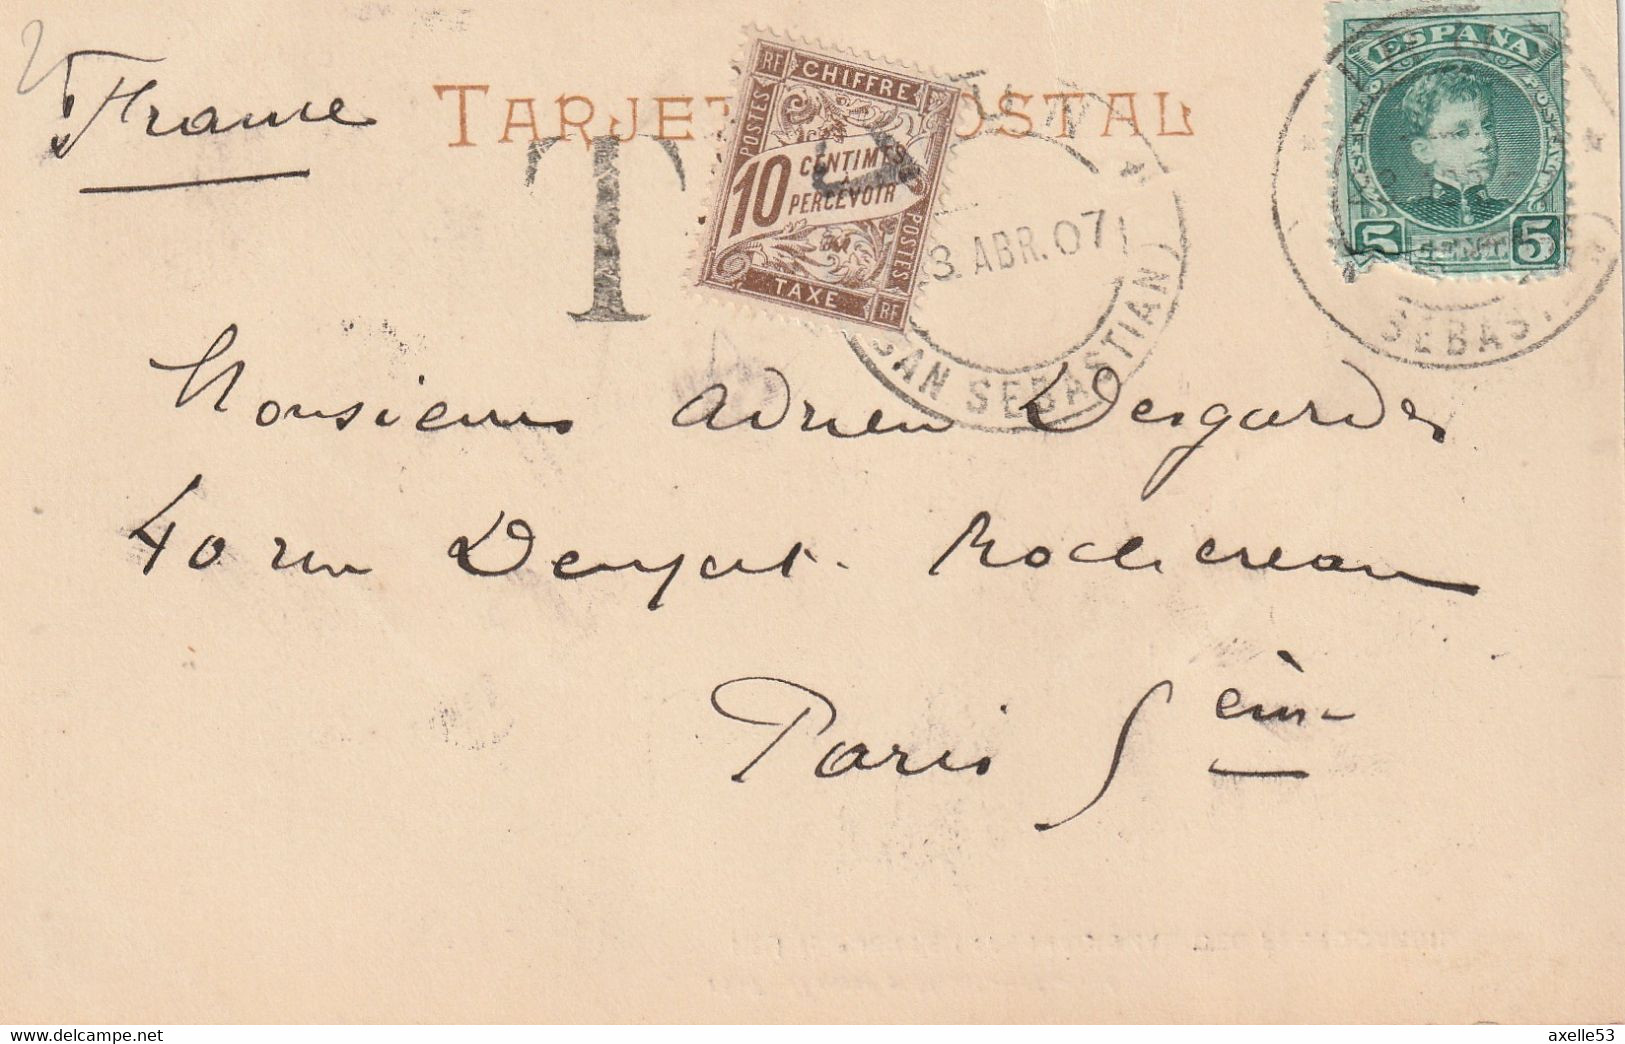 France
TARJETA POSTAL
ESPAÑA
5 5
RF CHIFFRE
POSTES
10 CENTIMES
A
PERCEVOIR
POSTES
TAXE RF
T
3 ABR. 07
(SAN SEBASTIAN)
SEBAST
Monsieur Adrien Desgardes
40 rue Denfert-Rochereau
Paris 5ème
www.delcampe.net
axelle53